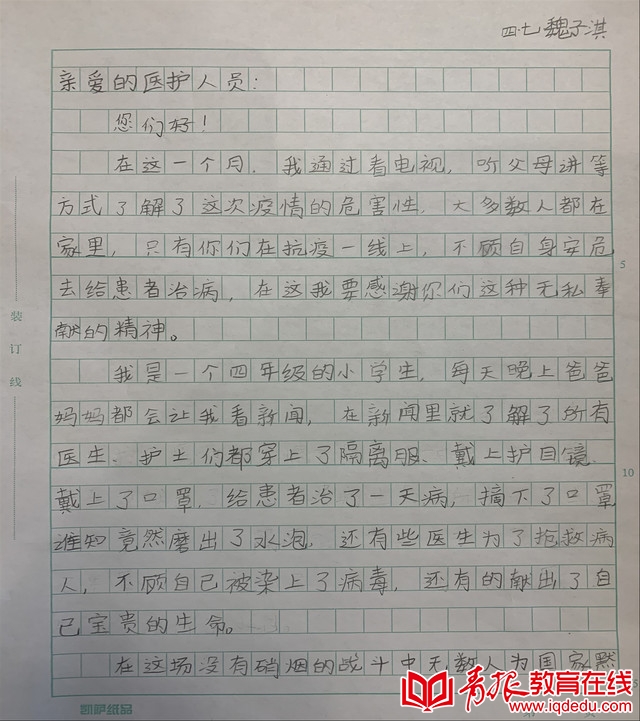 四.七 魏子淇
亲爱的医护人员：
您们好！
在这一个月，我通过看电视，听父母讲等
方式了解了这次疫情的危害性，大多数人都在
家里，只有你们在抗疫一线上，不顾自身安危
去给患者治病，在这我要感谢你们这种无私奉
献的精神。
我是一个四年级的小学生，每天晚上爸爸
妈妈都会让我看新闻，在新闻里就了解了所有
医生、护士们都穿上了隔离服、戴上护目镜、
戴上了口罩，给患者治了一天病，摘下了口罩
谁知竟然磨出了水泡，还有些医生为了抢救病
人，不顾自己被染上了病毒，还有的献出了自
己宝贵的生命。
在这场没有硝烟的战斗中无数人为国家默
装订线
5
10
凯萨纸品
青报教育在线
www.iqdedu.com